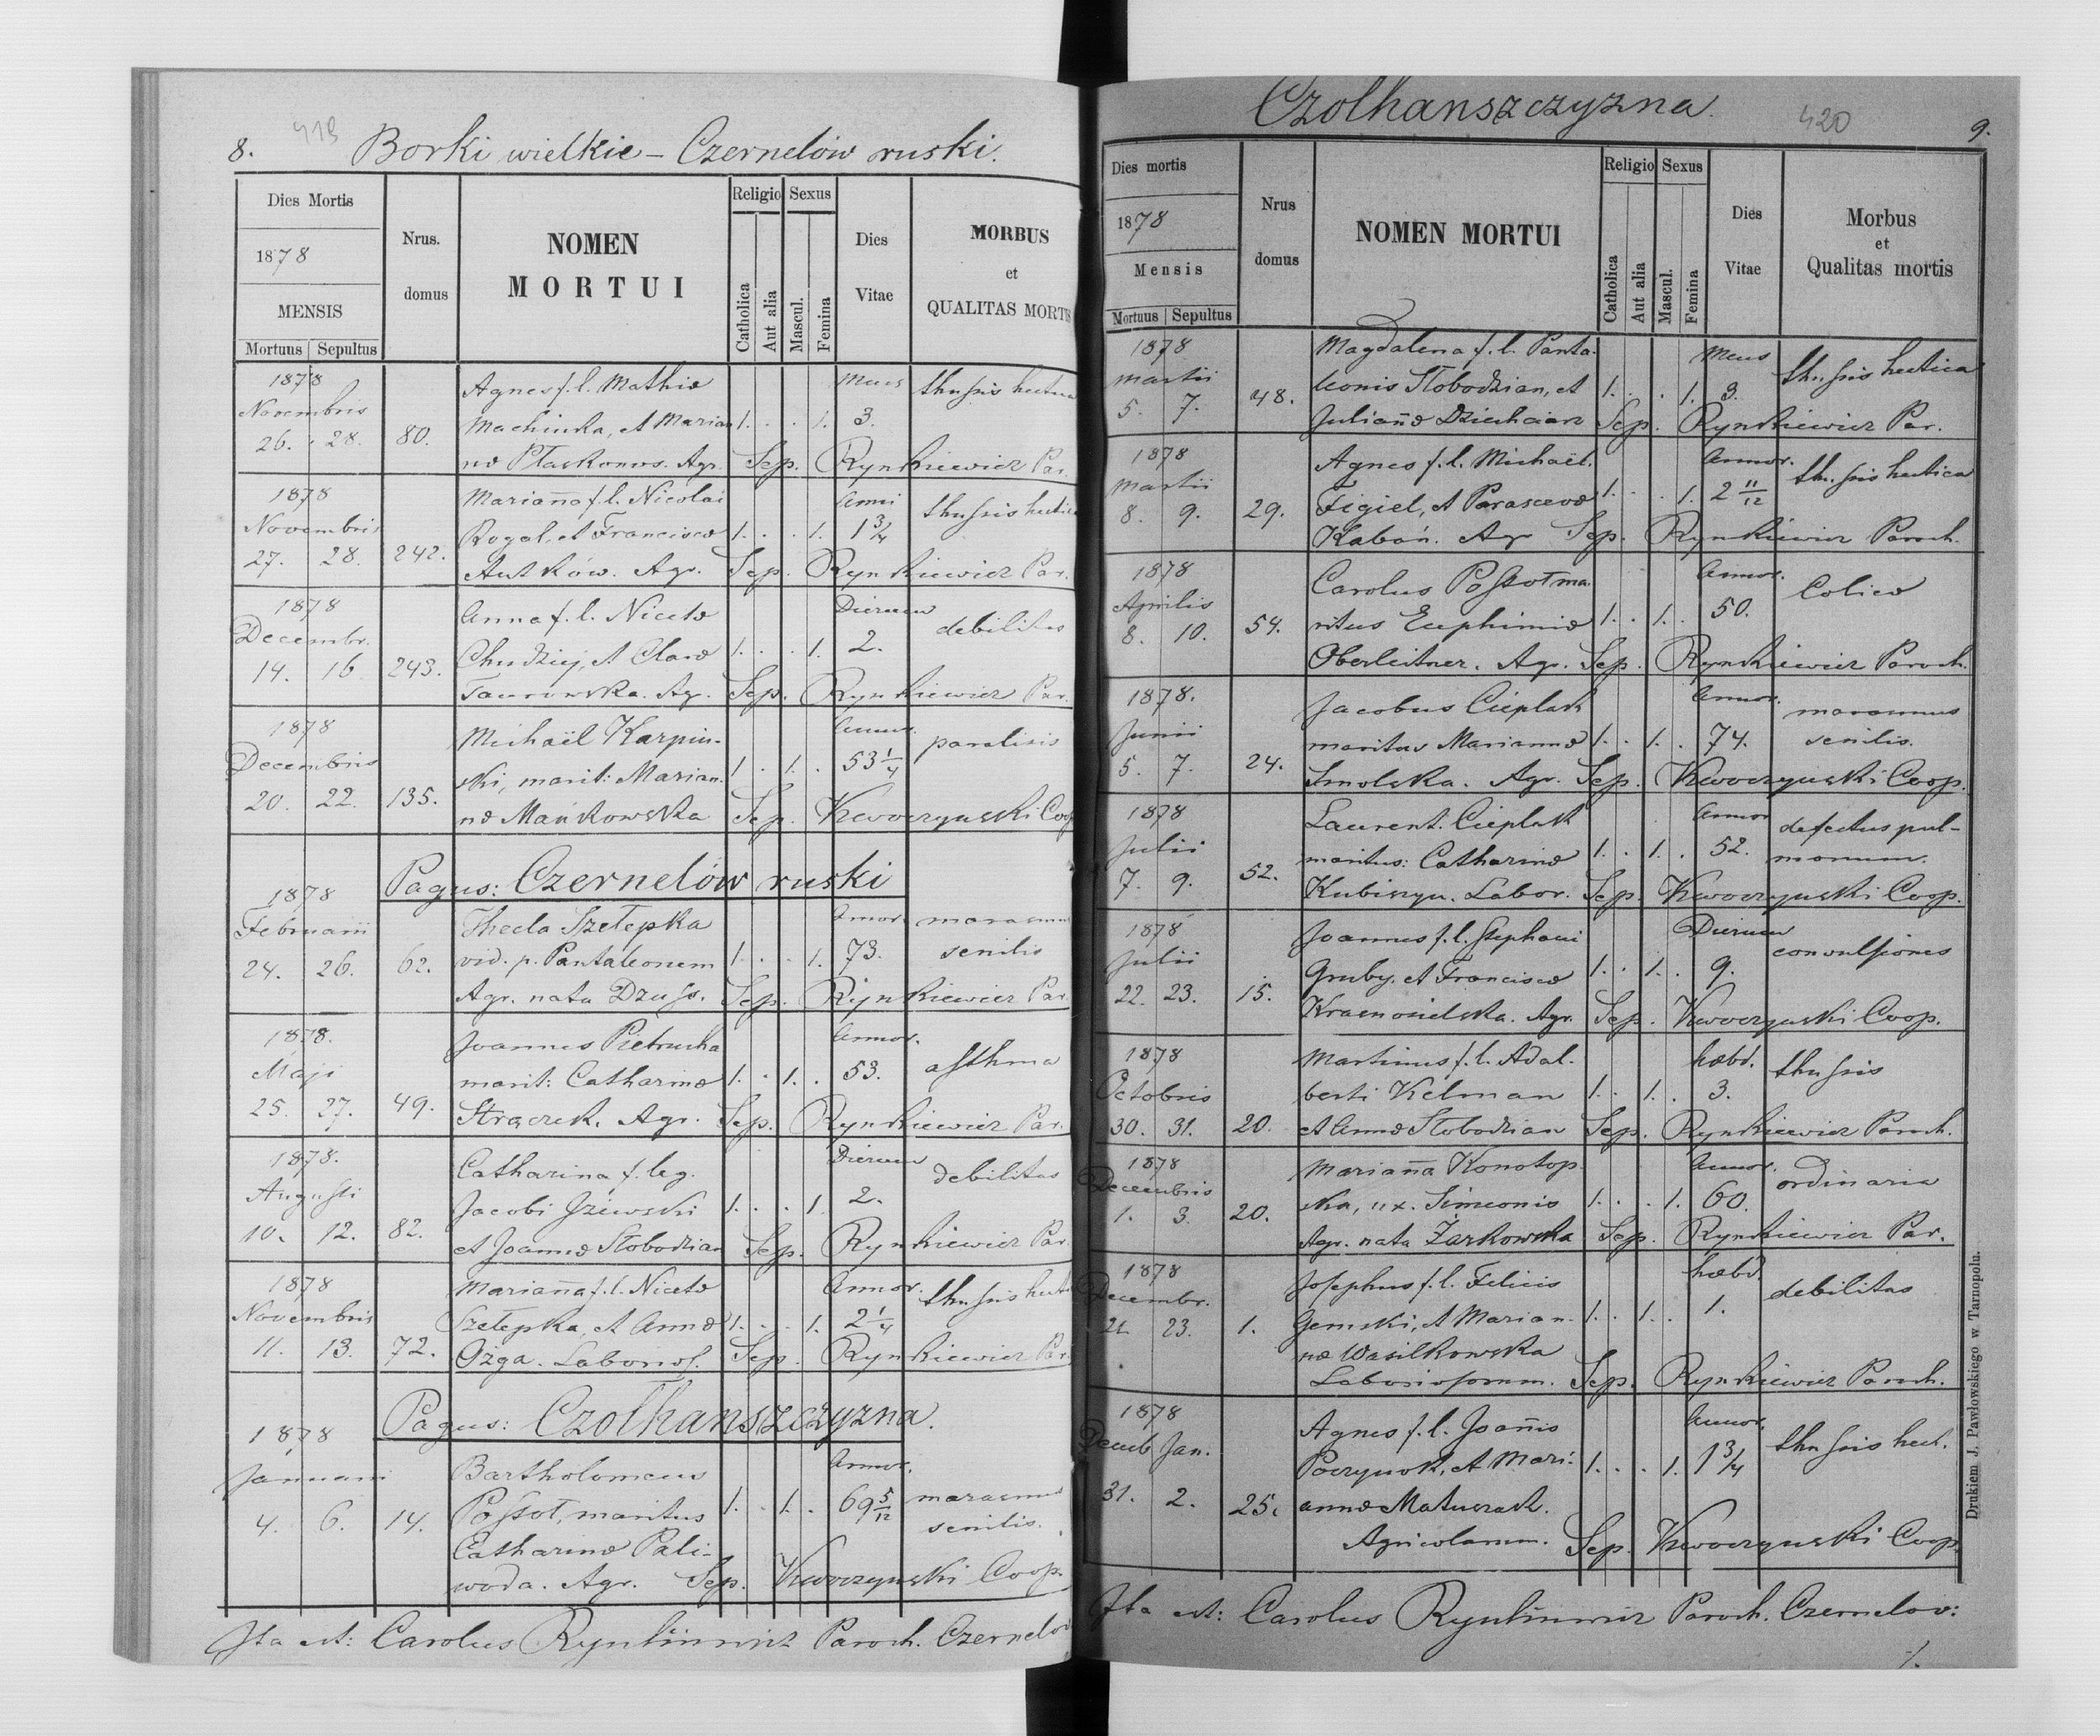 8. 419 Borki wielkie – Czernelów ruski.
Dies Mortis
1878
MENSIS
Mortuus Sepultus
Nrus. domus
NOMEN
MORTUI
Religio
Catholica
Aut alia
Sexus
Mascul.
Femina
Dies
Vitae
MORBUS
et
QUALITAS MORTIS
1878
Novembris
26. 28. 80.
Agnes f. l. Mathiæ
Machinka, et Marian
næ Płaskonos. Agr.
1. . . 1.
Mens
3.
thussis hectica
Sep. Rynkiewicz Par.
1878
Novembris
27. 28. 242.
Mariana f. l. Nicolai
Rogal, et Franciscæ
Antków. Agr.
1. . . 1.
Anni
1 3/4
thussis hectica
Sep. Rynkiewicz Par.
1878
Decembr.
14. 16 243.
Anna f. l. Nicetæ
Chudziej, et Claræ
Taurowska. Ag.
1. . . 1.
Dierum
2.
debilitas
Sep. Rynkiewicz Par.
1878
Decembris
20. 22. 135.
Michaël Karpin-
ski, marit: Marian.
næ Mańkowska
1 . 1. .
Annor.
53 1/4
paralisis
Sep. Kwoczynski Coop
Pagus: Czernelów ruski
1878
Februarii
24. 26. 62.
Thecla Szełepka
vid. p. Pantaleonem
Agr. nata Dzus.
1. . . 1.
Annor.
73.
marasmus
senilis
Sep. Rynkiewicz Par.
1878.
Maji
25. 27. 49.
Joannes Pietrucha
marit: Catharinæ
Strączek. Agr.
1. . 1. .
Annor.
53.
asthma
Sep. Rynkiewicz Par.
1878.
Augusti
10. 12. 82.
Catharina f. leg.
Jacobi Iżewski
et Joannæ Słobodzian
1. . . 1.
Dierum
2.
debilitas
Sep. Rynkiewicz Par.
1878
Novembris
11. 13. 72.
Mariana f. l. Nicetæ
Szełepka, et Annæ
Ożga. Laborios.
1. . . 1.
Annor.
2 1/4
thussis hecti
Sep. Rynkiewicz Par
Pagus: Czołhanszczyzna.
1878
Januarii
4. 6. 14.
Bartholomeus
Posset, maritus
Catharinæ Pali-
woda. Agr.
1. . 1. .
Annor.
69 5/12
marasmus
senilis.
Sep. Kwoczynski Coop.
Ita est: Carolus Rynkiewicz Paroch. Czernelov
Czolhanszczyzna. 420 9.
Dies mortis
1878
Mensis
Mortuus Sepultus
Nrus domus
NOMEN MORTUI
Religio
Catholica
Aut alia
Sexus
Mascul.
Femina
Dies
Vitae
Morbus
et
Qualitas mortis
1878
Martii
5. 7. 48.
Magdalena f. l. Panta-
leonis Słobodzian, et
Julianæ Dziehciarz
1. . . 1.
Mens
3.
thussis hectica
Sep. Rynkiewicz Par.
1878
Martii
8. 9. 29.
Agnes f. l. Michaël.
Figiel, et Parascevæ
Kabań. Agr
1. . . 1.
Annor.
2 11/12
thussis hectica
Sep. Rynkiewicz Paroch.
1878
Aprilis
8. 10. 54.
Carolus Possot ma-
ritus Euphimiæ
Oberleitner. Agr.
1. . 1. .
Annor.
50.
Colica
Sep. Rynkiewicz Paroch.
1878.
Junii
5. 7. 24.
Jacobus Cieplak
maritus Mariannæ
Smolska. Agr.
1. . 1. .
Annor.
74.
marasmus
senilis.
Sep. Kwoczynski Coop.
1878
Julii
7. 9. 52.
Laurent. Cieplak
maritus: Catharinæ
Kubiszyn. Labor.
1. . 1. .
Annor
52.
defectus pul-
monum.
Sep. Kwoczynski Coop.
1878
Julii
22. 23. 15.
Joannes f. l. Stephani
Gruby, et Franciscæ
Krasnosielska. Agr.
1. . 1. .
Dierum
9.
convulsiones
Sep. Kwoczynski Coop.
1878
Octobris
30. 31. 20.
Martinus f. l. Adal.
berti Kelman
et Annæ Słobodzian
1. . 1. .
hæbd.
3.
thussis
Sep. Rynkiewicz Paroch.
1878
Decembris
1. 3. 20.
Mariana Konotop-
ska, ux. Simeonis
Agr. nata Żarkowska
1. . . 1.
Annor.
60.
ordinaria
Sep. Rynkiewicz Par.
1878
Decembr.
21. 23. 1.
Josephus f. l. Felicis
Gemski, et Marian-
næ Wasilkowska
Laboriosorum.
1. . 1. .
hæbd.
1.
debilitas
Sep. Rynkiewicz Paroch.
1878
Decemb Jan.
31. 2. 25.
Agnes f. l. Joanis
Poczynok, et Mari-
annæ Matuszak.
Agricolarum.
1. . . 1.
Annor.
1 3/4
thussis hect.
Sep. Kwoczynski Coop.
Ita est: Carolus Rynkiewicz Paroch. Czernelov:
Drukiem J. Pawłowskiego w Tarnopolu.